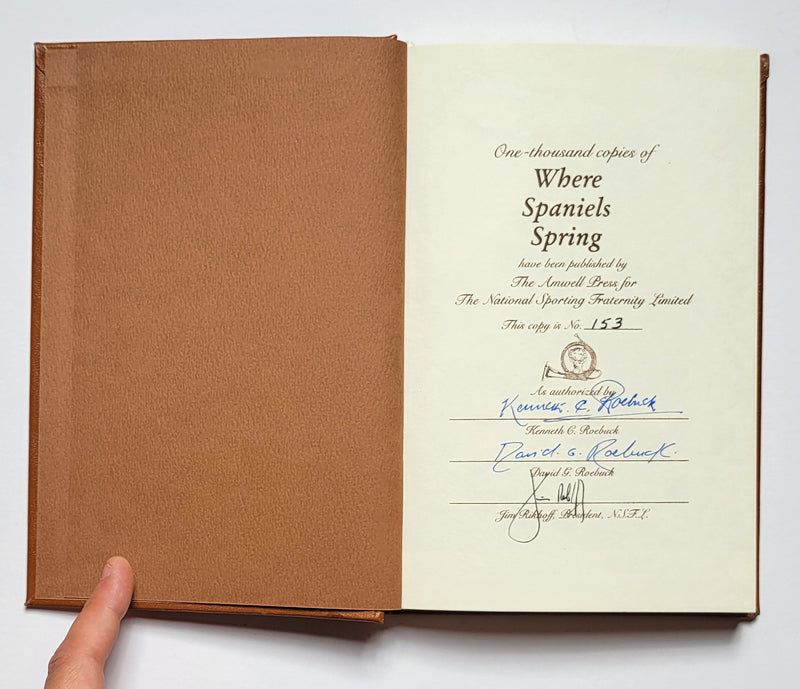 One-thousand copies of
Where
Spaniels
Spring
have been published by
The Amwell Press for
The National Sporting Fraternity Limited
This copy is No. 153
As authorized by
Kenneth C. Roebuck
Kenneth C. Roebuck
David. G. Roebuck.
David G. Roebuck
Jim Rikhoff
Jim Rikhoff, President, N.S.F.L.